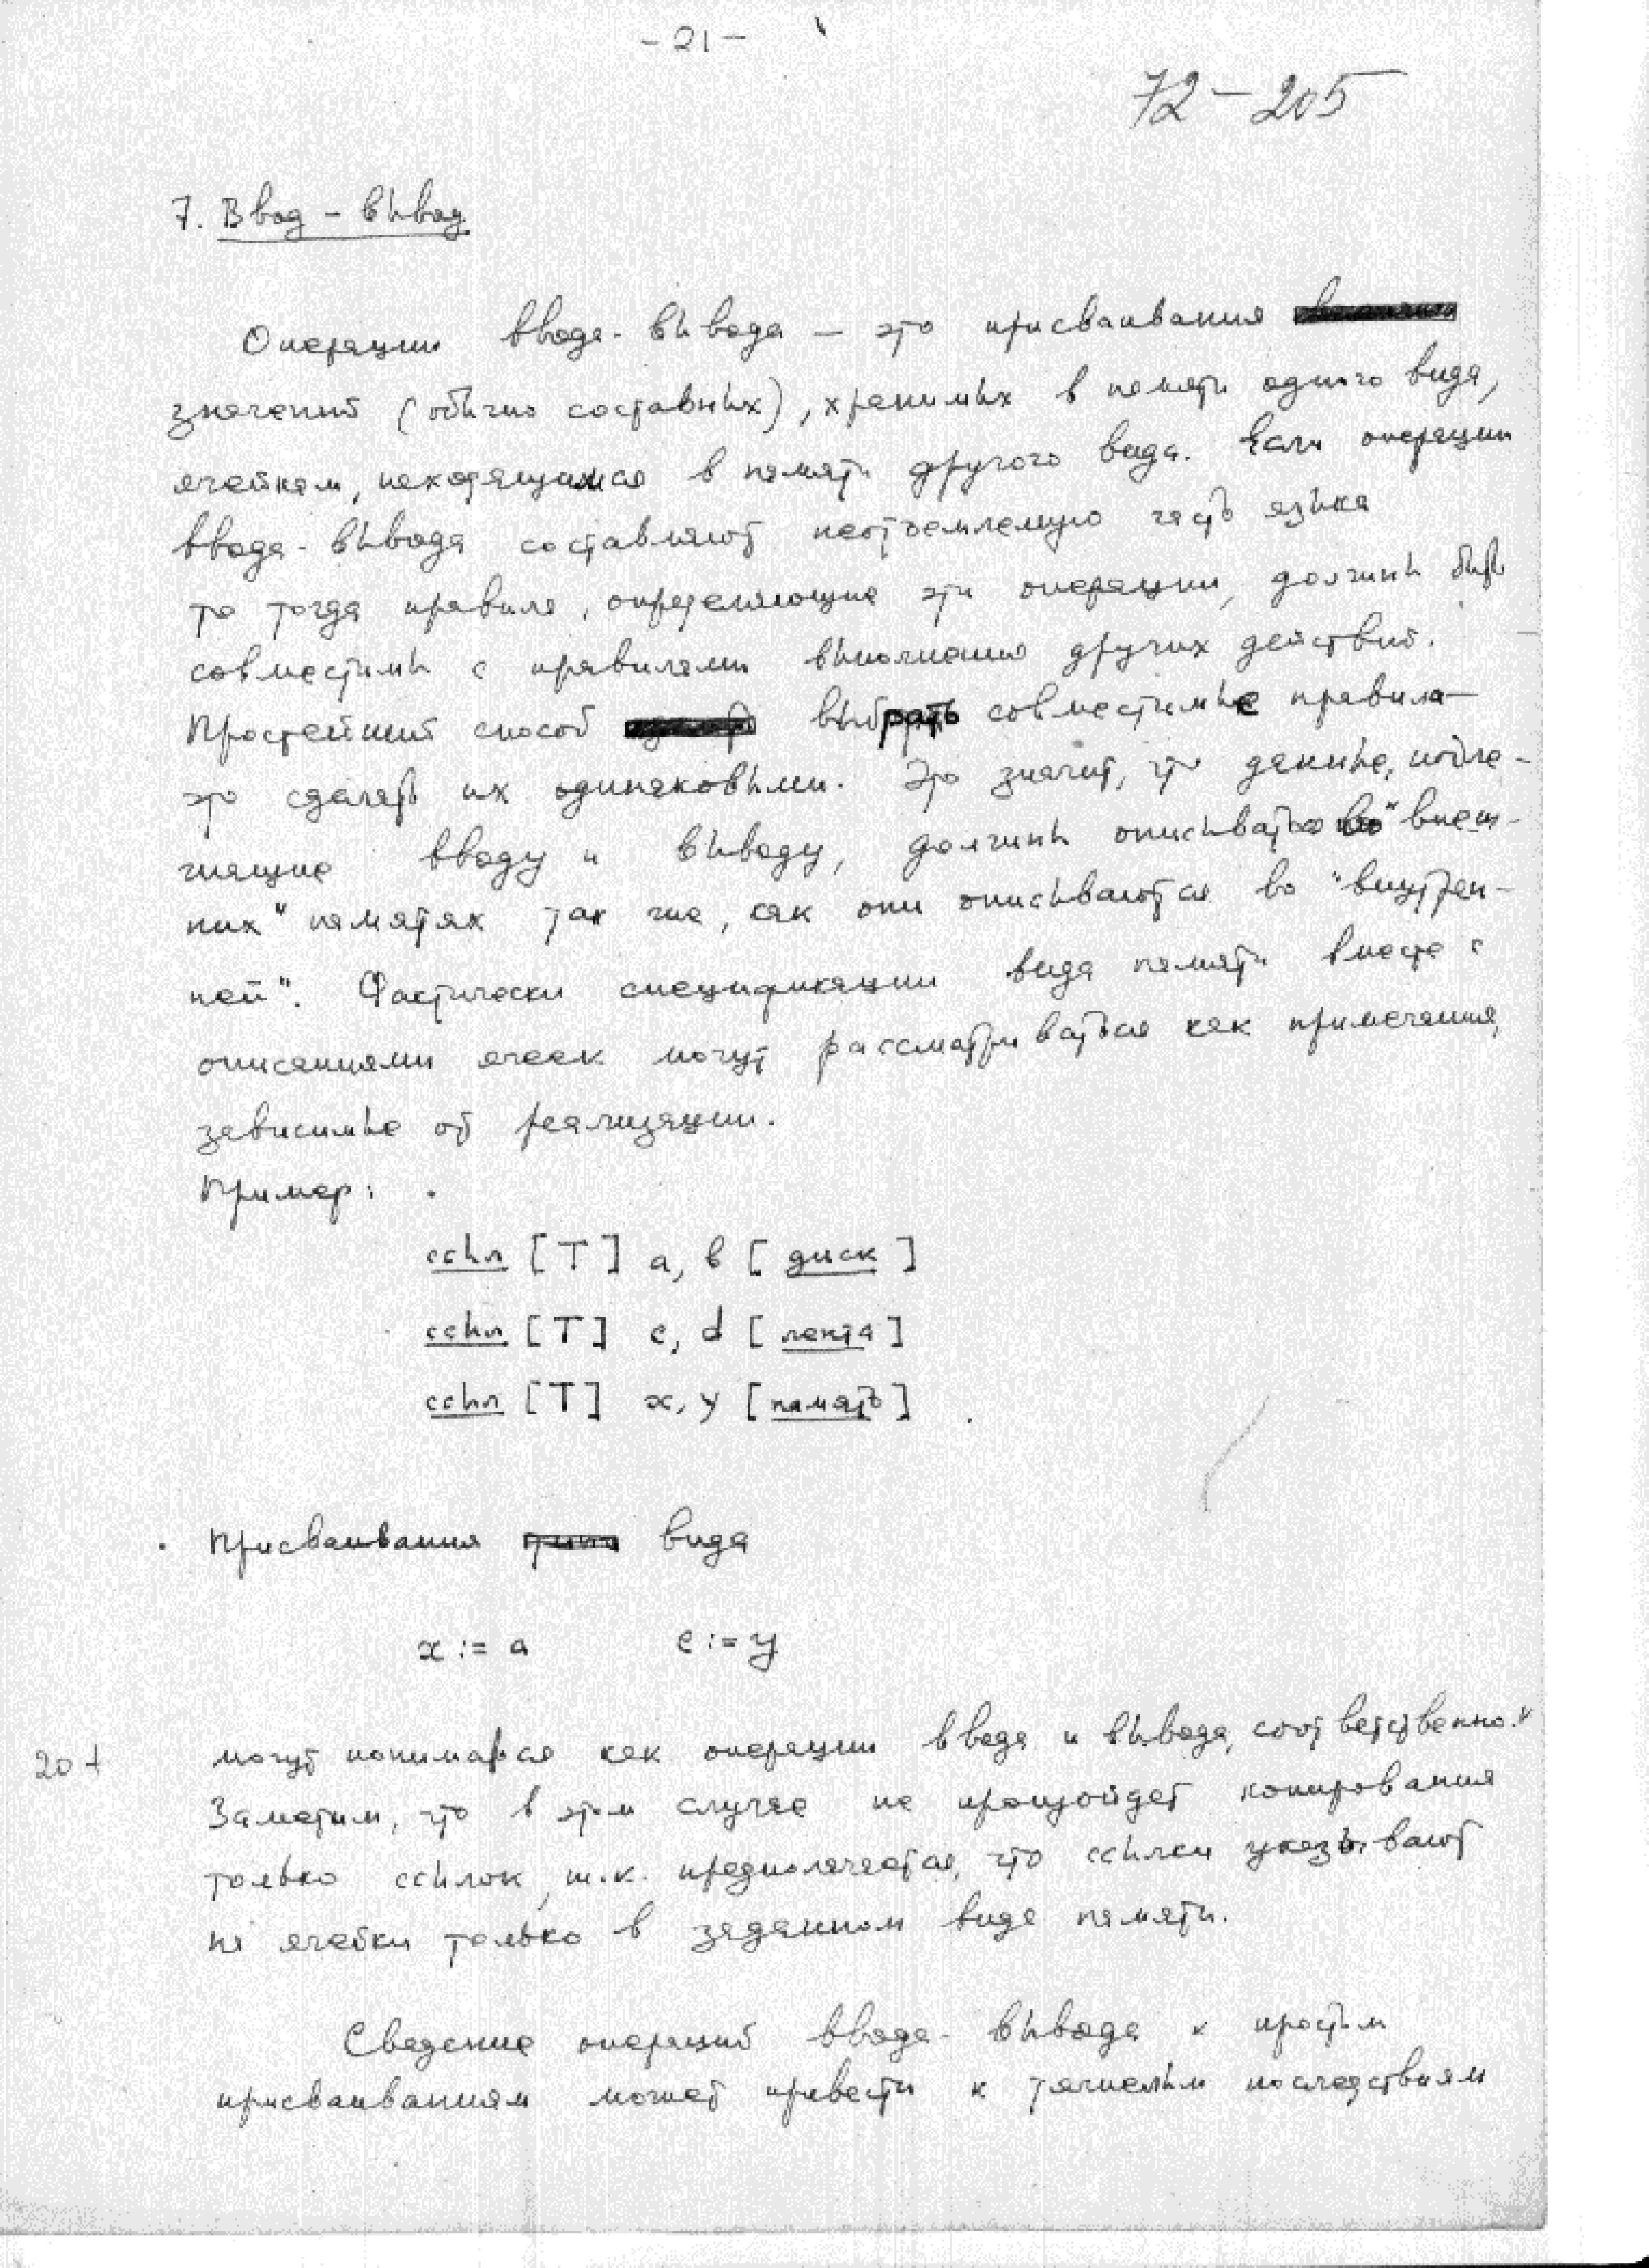 - 21 -
72-205
7. Ввод - вывод
Операции ввода-вывода — это присваивания
значений (обычно составных), хранимых в памяти одного вида,
ячейкам, находящимся в памяти другого вида. Если операции
ввода-вывода составляют неотъемлемую часть языка
то тогда правила, определяющие эти операции, должны быть
совместимы с правилами выполнения других действий.
Простейший способ выбрать совместимые правила—
это сделать их одинаковыми. Это значит, что данные, подле-
жащие вводу и выводу, должны описываться во "внеш-
них" памятях так же, как они описываются во "внутрен-
ней". Фактически спецификации вида памяти вместе с
описаниями ячеек могут рассматриваться как примечания,
зависимые от реализации.
Пример:
ссыл [T] a, b [диск]
ссыл [T] c, d [лента]
ссыл [T] x, y [память]
Присваивания вида
x := a c := y
20 +
могут пониматься как операции ввода и вывода, соответственно.
Заметим, что в этом случае не произойдет копирования
только ссылок, т.к. предполагается, что ссылки указывают
на ячейки только в заданном виде памяти.
Сведение операций ввода-вывода к простым
присваиваниям может привести к тяжелым последствиям